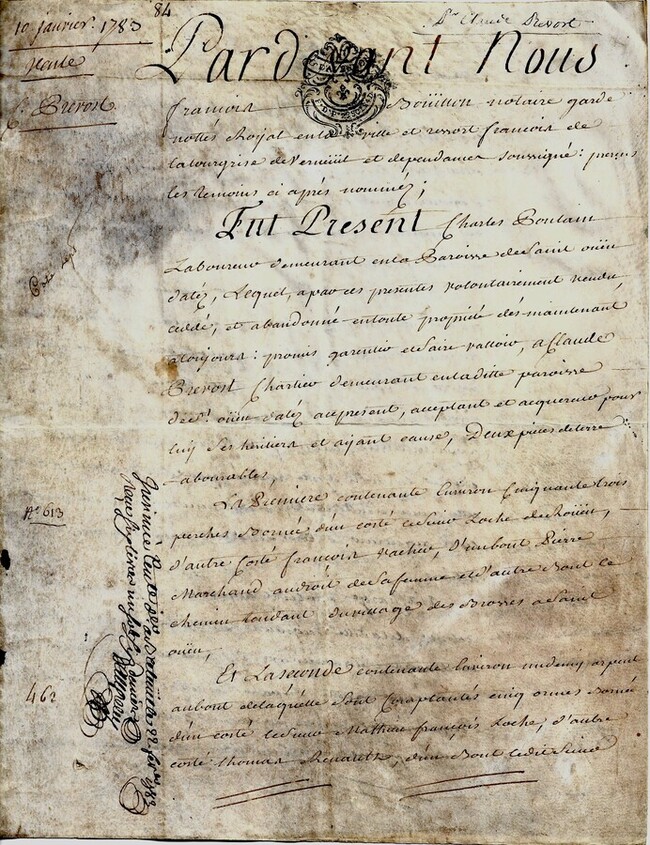 84
10 janvier 1783
Vente
Claude Prevost
C. Prevost
Pardevant Nous
François Boüillon notaire garde
nottes Royal en la ville et ressort françois de
la tourgrise de Verneüil et dependances soussigné: presens
les temoins ci aprés nommés;
Fut Present Charles Boulain
Laboureur demeurant en la Paroisse de Saint oüen
d'atéz, Lequel, a par ces presentes volontairement vendu,
ceddé, et abandonné en toute proprieté dés maintenant
a toujours: promis garentir et faire valloir, a Claude
Prevost Chartier demeurant en laditte paroisse
de St. oüen d'atéz ace present, acceptant et acquereur pour
luy ses heritiers et ayant cause, Deux pieces de terre
labourables,
La Premiere contenante Environ Cinquante trois
perches Bornée d'un costé le Sieur Loche de Roüen,
d'autre Costé françois vachér, d'un bout Pierre
Marchand au droit de sa femme et d'autre Bout le
chemin tendant du village des Brosses a Saint
oüen,
Et La seconde contenante Environ un demy arpent
au bout de laquelle sont Complantés cinq ormes Bornée
d'un costé le Sieur Mathieu françois Loche, d'autre
costé thomas Renault, d'un Bout ledit Sieur
No. 613
462